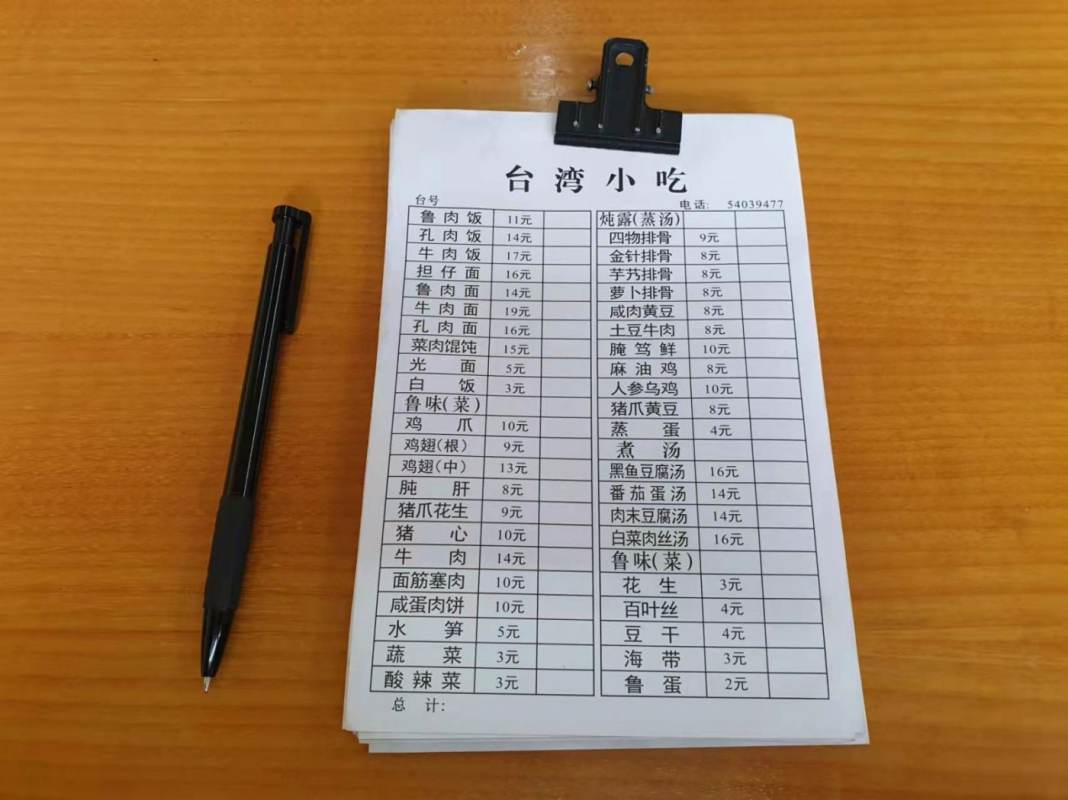 台湾小吃
台号
电话: 54039477
鲁肉饭 11元
孔肉饭 14元
牛肉饭 17元
担仔面 16元
鲁肉面 14元
牛肉面 19元
孔肉面 16元
菜肉馄饨 15元
光面 5元
白饭 3元
鲁味(菜)
鸡爪 10元
鸡翅(根) 9元
鸡翅(中) 13元
肫肝 8元
猪爪花生 9元
猪心 10元
牛肉 14元
面筋塞肉 10元
咸蛋肉饼 10元
水笋 5元
蔬菜 3元
酸辣菜 3元
总计:
炖露(蒸汤)
四物排骨 9元
金针排骨 8元
芋艿排骨 8元
萝卜排骨 8元
咸肉黄豆 8元
土豆牛肉 8元
腌笃鲜 10元
麻油鸡 8元
人参乌鸡 10元
猪爪黄豆 8元
蒸蛋 4元
煮汤
黑鱼豆腐汤 16元
番茄蛋汤 14元
肉末豆腐汤 14元
白菜肉丝汤 16元
鲁味(菜)
花生 3元
百叶丝 4元
豆干 4元
海带 3元
鲁蛋 2元